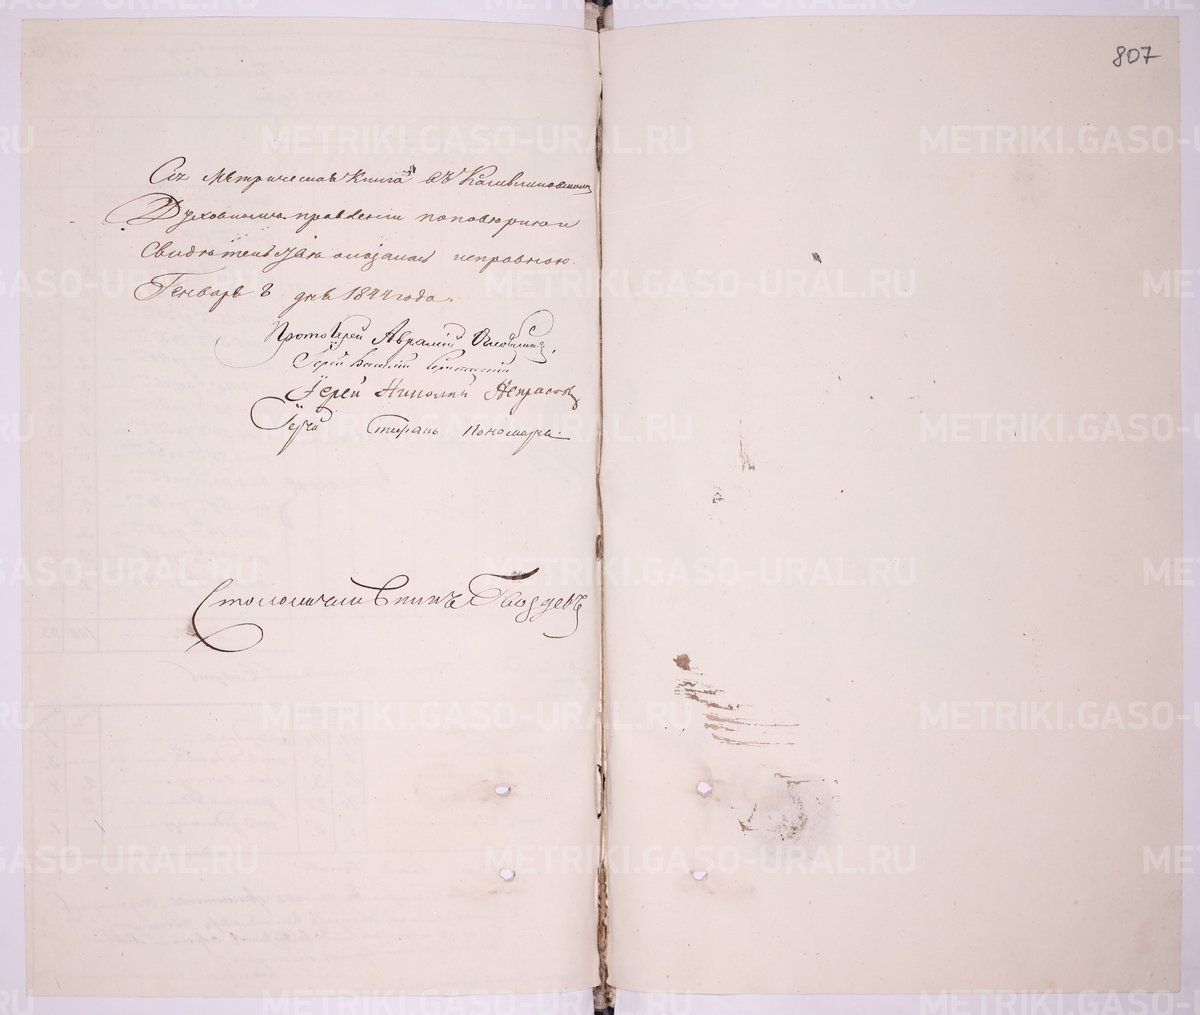 807
Сія Метрическая Книга въ Камышловскомъ
Духовномъ правленіи по повѣркѣ и
Свидѣтельству оказалась исправною.
Генваря 8 дня 1844 года.
Протоіерей Аврамій
Іерей Василій
Іерей Николай Некрасовъ
Іерей Стефанъ Пономаревъ
Столоначальникъ Гвоздевъ
METRIKI.GASO-URAL.RU